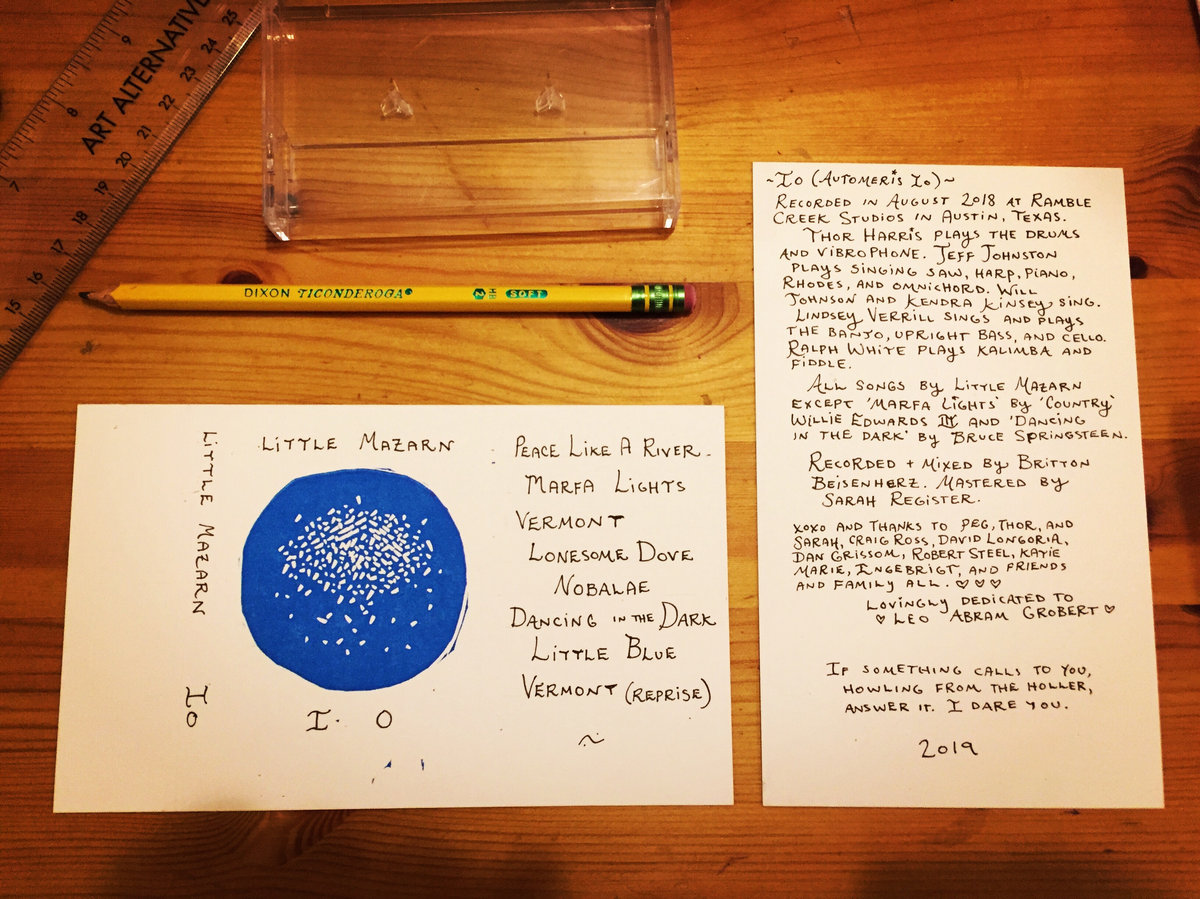 ART ALTERNATIVE
9
8
7
25
24
23
22
21
20
19
18
17
16
15
DIXON TICONDEROGA
2
HB
SOFT
LITTLE MAZARN
IO
LITTLE MAZARN
I. O
PEACE LIKE A RIVER.
MARFA LIGHTS
VERMONT
LONESOME DOVE
NOBALAE
DANCING IN THE DARK
LITTLE BLUE
VERMONT (REPRISE)
~
~IO (AUTOMERIS IO)~
RECORDED IN AUGUST 2018 AT RAMBLE
CREEK STUDIOS IN AUSTIN, TEXAS.
THOR HARRIS PLAYS THE DRUMS
AND VIBROPHONE. JEFF JOHNSTON
PLAYS SINGING SAW, HARP, PIANO,
RHODES, AND OMNICHORD. WILL
JOHNSON AND KENDRA KINSEY SING.
LINDSEY VERRILL SINGS AND PLAYS
THE BANJO, UPRIGHT BASS, AND CELLO.
RALPH WHITE PLAYS KALIMBA AND
FIDDLE.
ALL SONGS BY LITTLE MAZARN
EXCEPT 'MARFA LIGHTS' BY 'COUNTRY'
WILLIE EDWARDS III AND 'DANCING
IN THE DARK' BY BRUCE SPRINGSTEEN.
RECORDED + MIXED BY BRITTON
BEISENHERZ. MASTERED BY
SARAH REGISTER.
XOXO AND THANKS TO PEG, THOR, AND
SARAH, CRAIG ROSS, DAVID LONGORIA,
DAN GRISSOM, ROBERT STEEL, KATIE
MARIE, INGEBRIGT, AND FRIENDS
AND FAMILY ALL. ♡♡♡
LOVINGLY DEDICATED TO
♡ LEO ABRAM GROBERT ♡
IF SOMETHING CALLS TO YOU,
HOWLING FROM THE HOLLER,
ANSWER IT. I DARE YOU.
2019